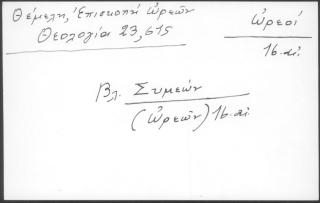 Θέμελη, Ἐπισκοπή Ὠρεῶν
Θεολογία 23, 615
Ὠρεοί
16. αἰ.
Βλ. Συμεών
(Ὠρεῶν) 16. αἰ.